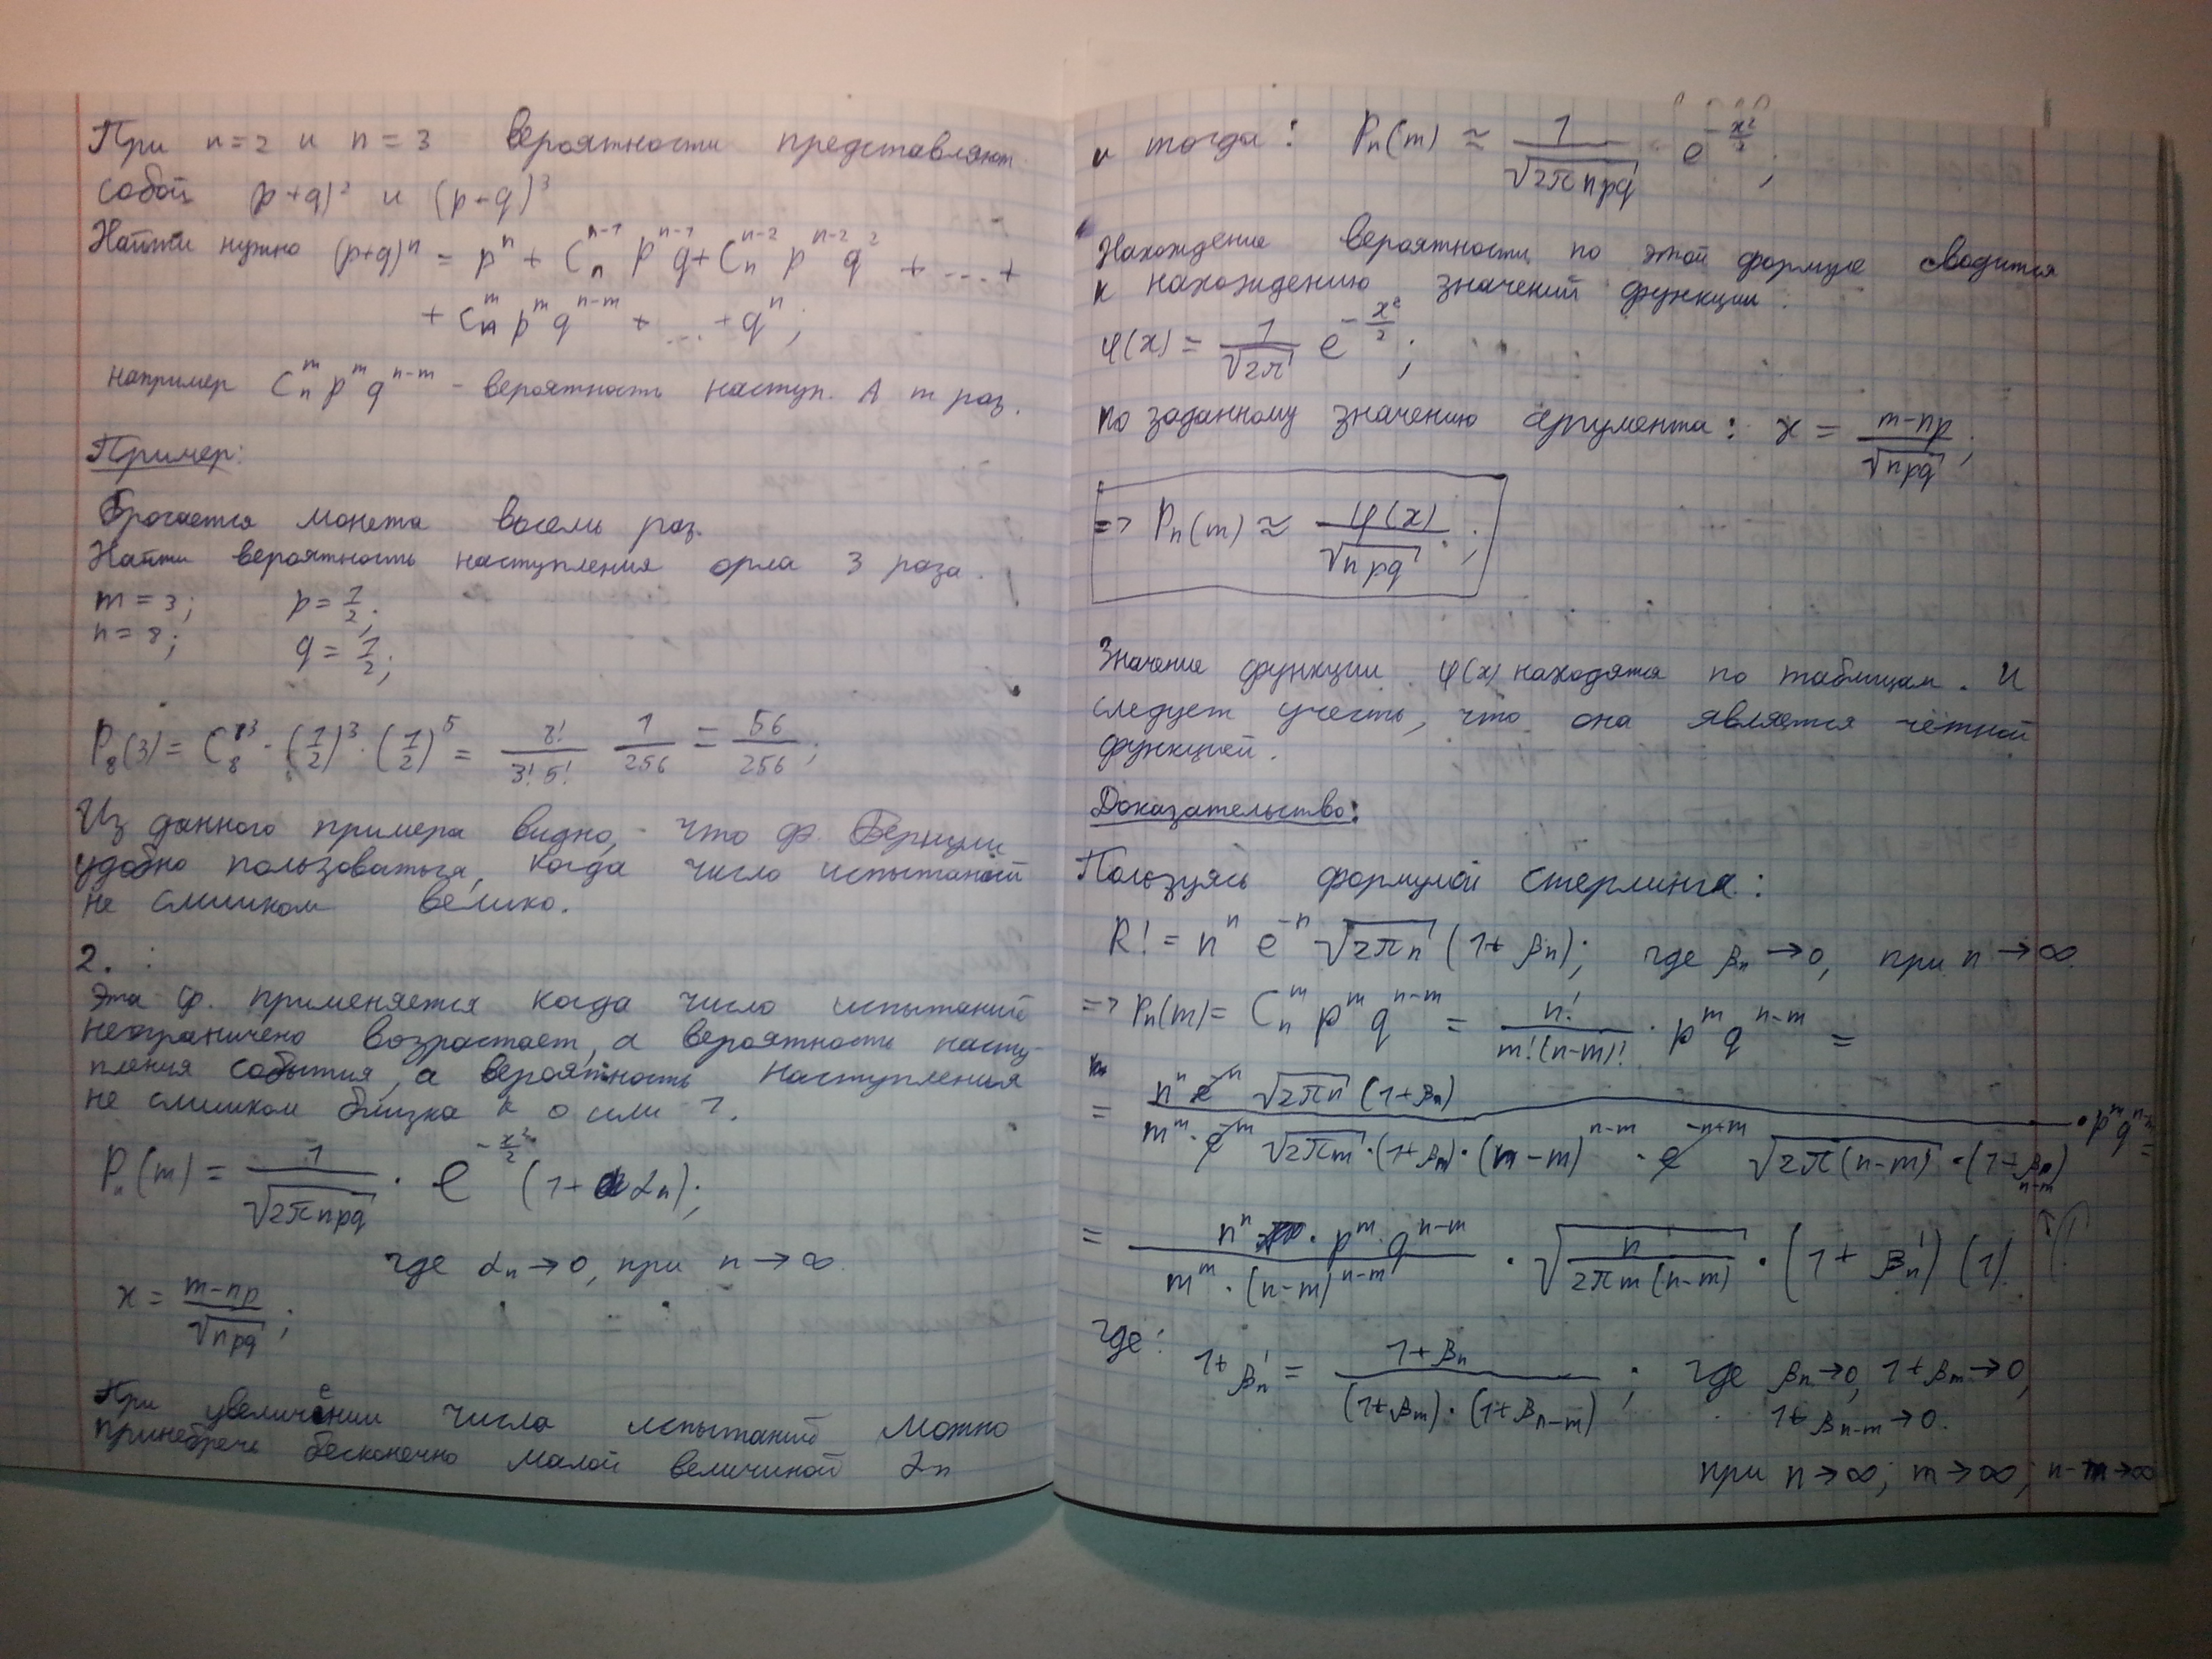 При n=2 и n=3 вероятности представляют
собой (p+q)² и (p+q)³
Найти нужно (p+q)ⁿ = pⁿ + Cₙⁿ⁻¹ pⁿ⁻¹ q + Cₙⁿ⁻² pⁿ⁻² q² + ... +
+ Cₙᵐ pᵐ qⁿ⁻ᵐ + ... + qⁿ;
например Cₙᵐ pᵐ qⁿ⁻ᵐ - вероятность наступ. A m раз.
Пример:
Брочается монета восемь раз.
Найти вероятность наступления орла 3 раза.
m = 3; p = 1/2;
n = 8; q = 1/2;
P₈(3) = C₈³ · (1/2)³ · (1/2)⁵ = 8!/(3! 5!) 1/256 = 56/256;
Из данного примера видно, что ф. Бернули
удобно пользоваться, когда число испытаний
не слишком велико.
2. :
Эта ф. применяется когда число испытаний
неограничено возрастает, а вероятность насту-
пления события, а вероятность наступления
не слишком близка к 0 или 1.
Pₙ(m) = 1/√(2πnpq) · e^(-x²/2) (1+αₙ);
где αₙ → 0, при n → ∞.
x = (m-np)/√(npq);
При увеличении числа испытаний можно
принебречь бесконечно малой величиной αₙ
и тогда: Pₙ(m) ≈ 1/√(2πnpq) e^(-x²/2);
Нахождение вероятности по этой формуле сводится
к нахождению значений функции:
φ(x) = 1/√(2π) e^(-x²/2);
по заданному значению аргумента: x = (m-np)/√(npq);
=> Pₙ(m) ≈ φ(x)/√(npq);
Значение функции φ(x) находятся по таблицам. И
следует учесть, что она является чётной
функцией.
Доказательство:
Пользуясь формулой Стерлинга:
R! = nⁿ e⁻ⁿ √(2πn) (1+βₙ); где βₙ → 0, при n → ∞.
=> Pₙ(m) = Cₙᵐ pᵐ qⁿ⁻ᵐ = n!/(m!(n-m)!) · pᵐ qⁿ⁻ᵐ =
= nⁿ e⁻ⁿ √(2πn) (1+βₙ) / (mᵐ · e⁻ᵐ √(2πm) · (1+βₘ) · (n-m)ⁿ⁻ᵐ · e⁻ⁿ⁺ᵐ √(2π(n-m)) · (1+βₙ₋ₘ)) · pᵐ qⁿ⁻ᵐ =
= nⁿ · pᵐ qⁿ⁻ᵐ / (mᵐ · (n-m)ⁿ⁻ᵐ) · √(n/(2πm(n-m))) · (1+βₙ') (1)
где:
1+βₙ' = (1+βₙ)/((1+βₘ)·(1+βₙ₋ₘ)); где βₙ→0, 1+βₘ→0,
1+βₙ₋ₘ→0.
при n→∞; m→∞; n-m→∞